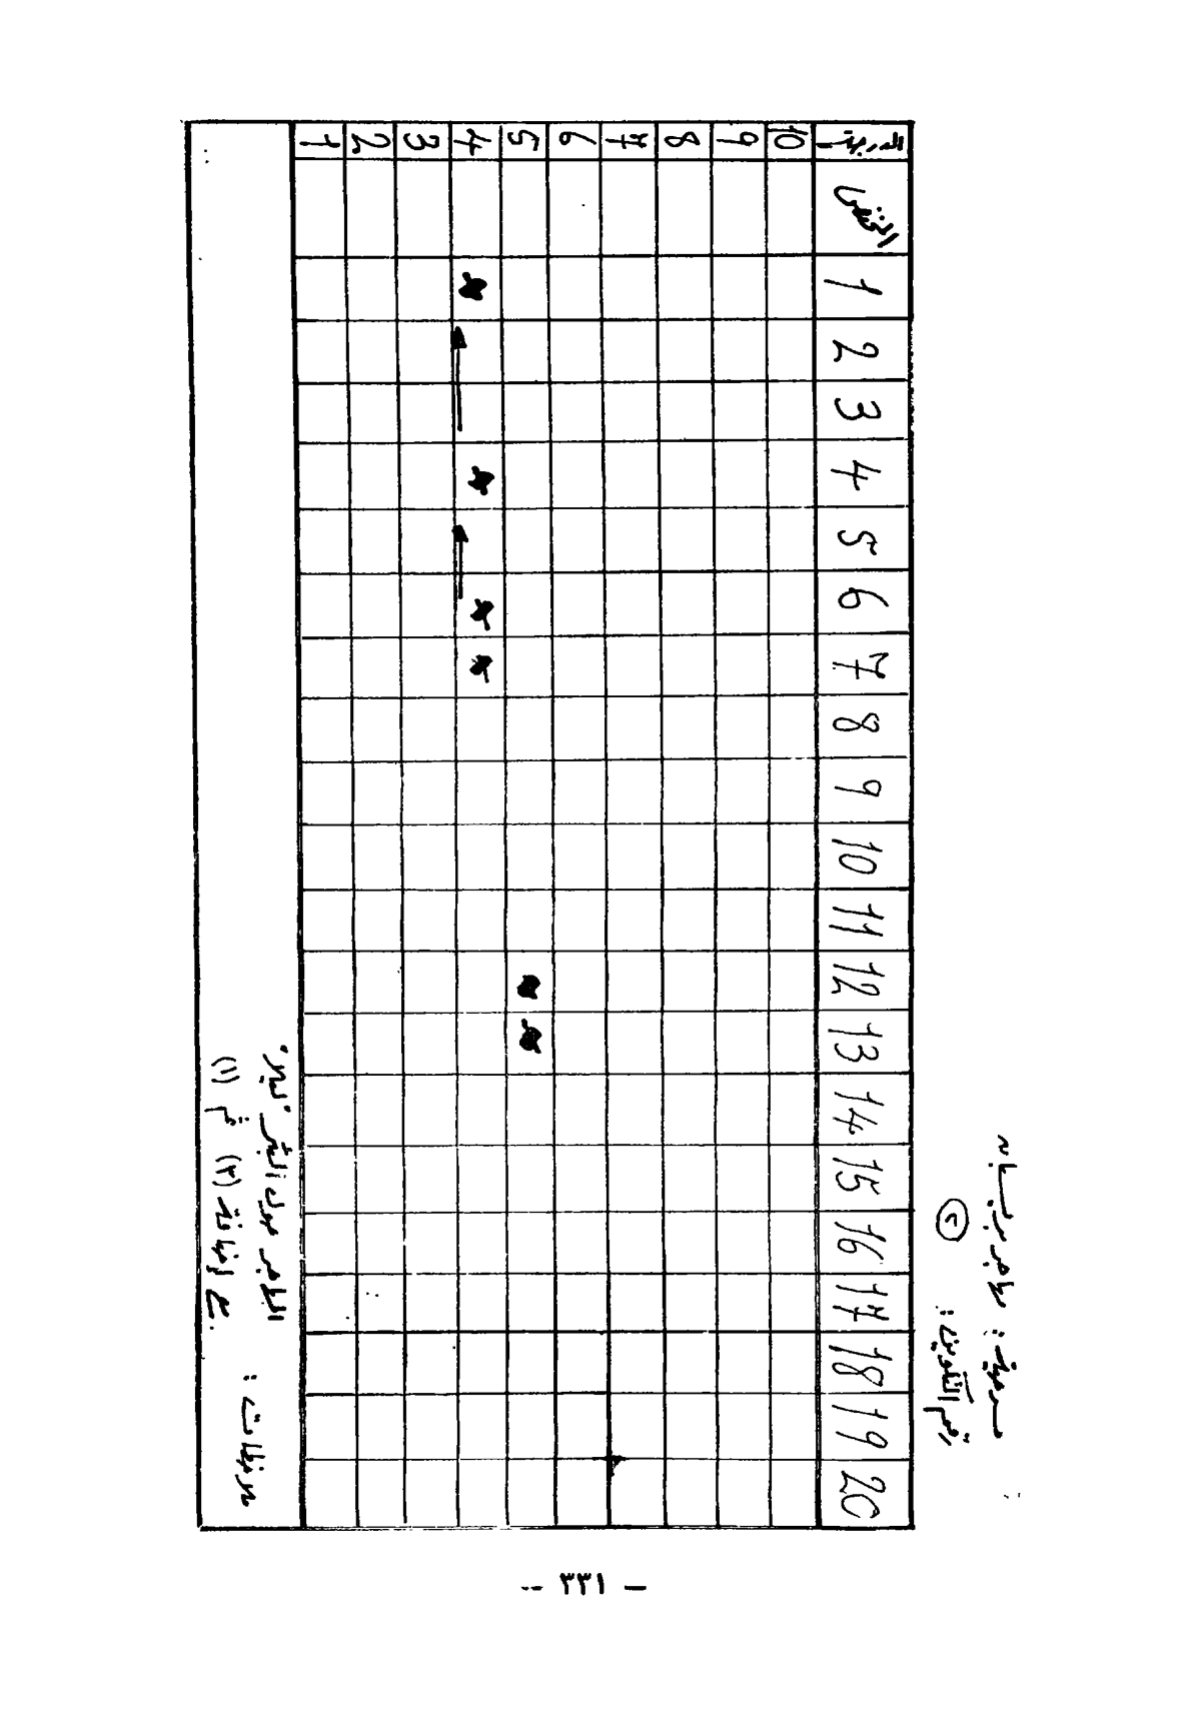 مسرحية : مهاجر بريسبان
رقم التكوين : ٢
1 2 3 4 5 6 7 8 9 10 11 12 13 14 15 16 17 18 19 20
10
9
8
7
6
5
4
3
2
1
ملاحظات : المهاجر حول البئر "ليلا"
مع إضافة (٢) ثم (١)
- ٣٣١ -